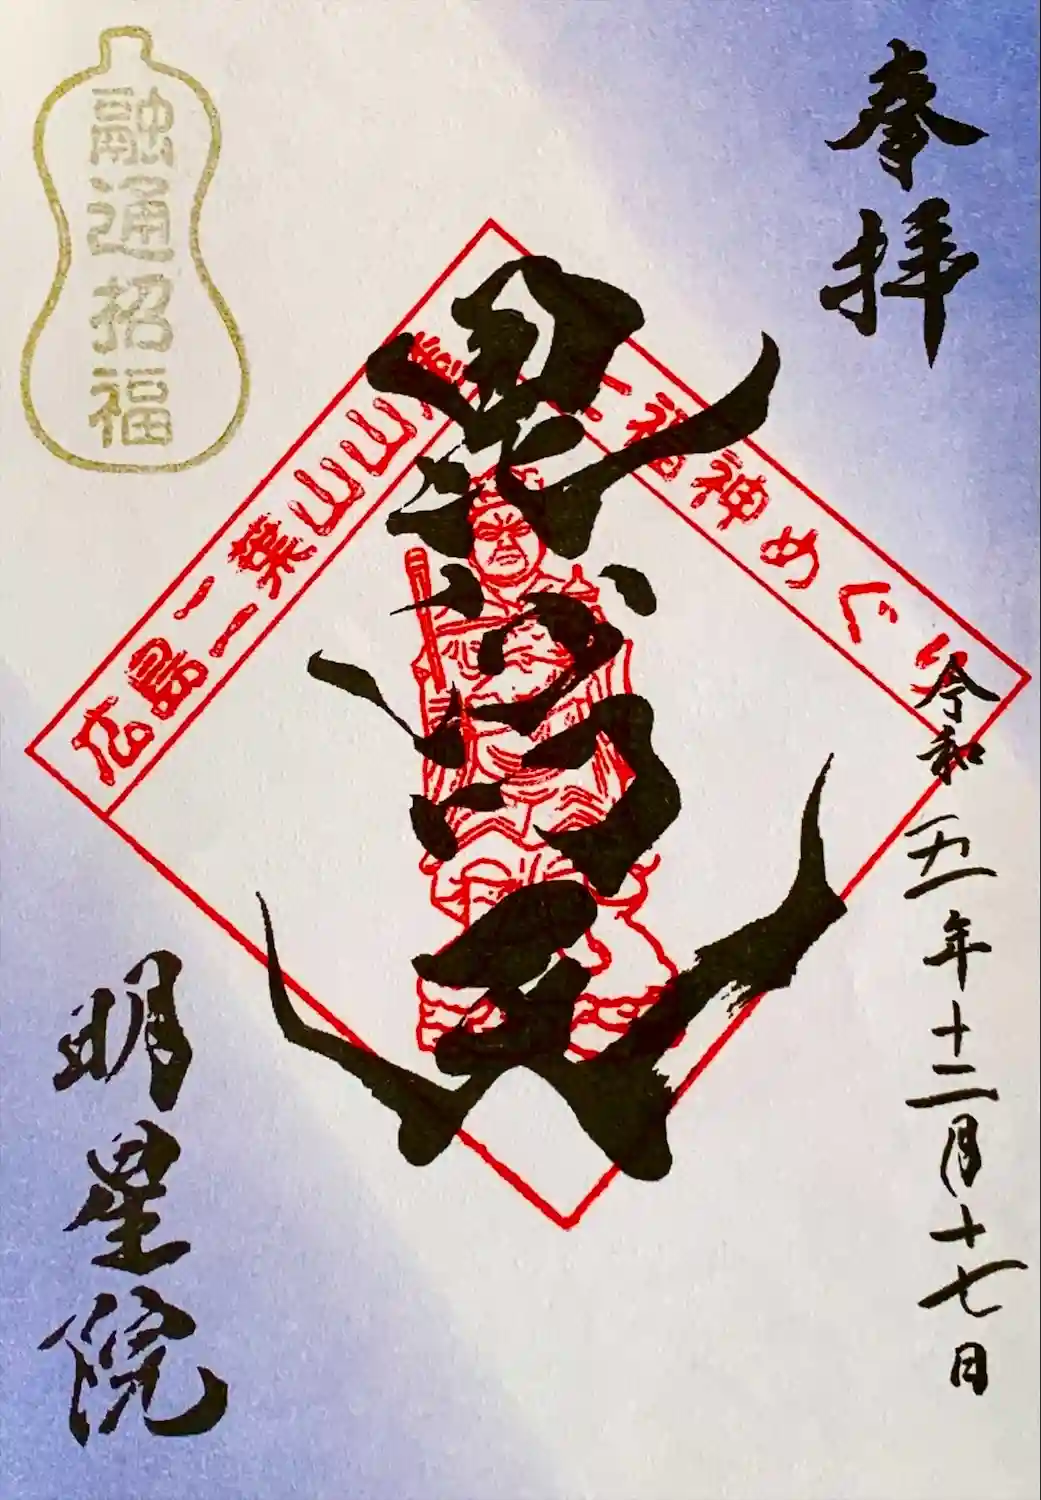 奉拝
令和五年十二月十七日
毘沙門天
広島二葉山山麓
七福神めぐり
融通招福
明星院